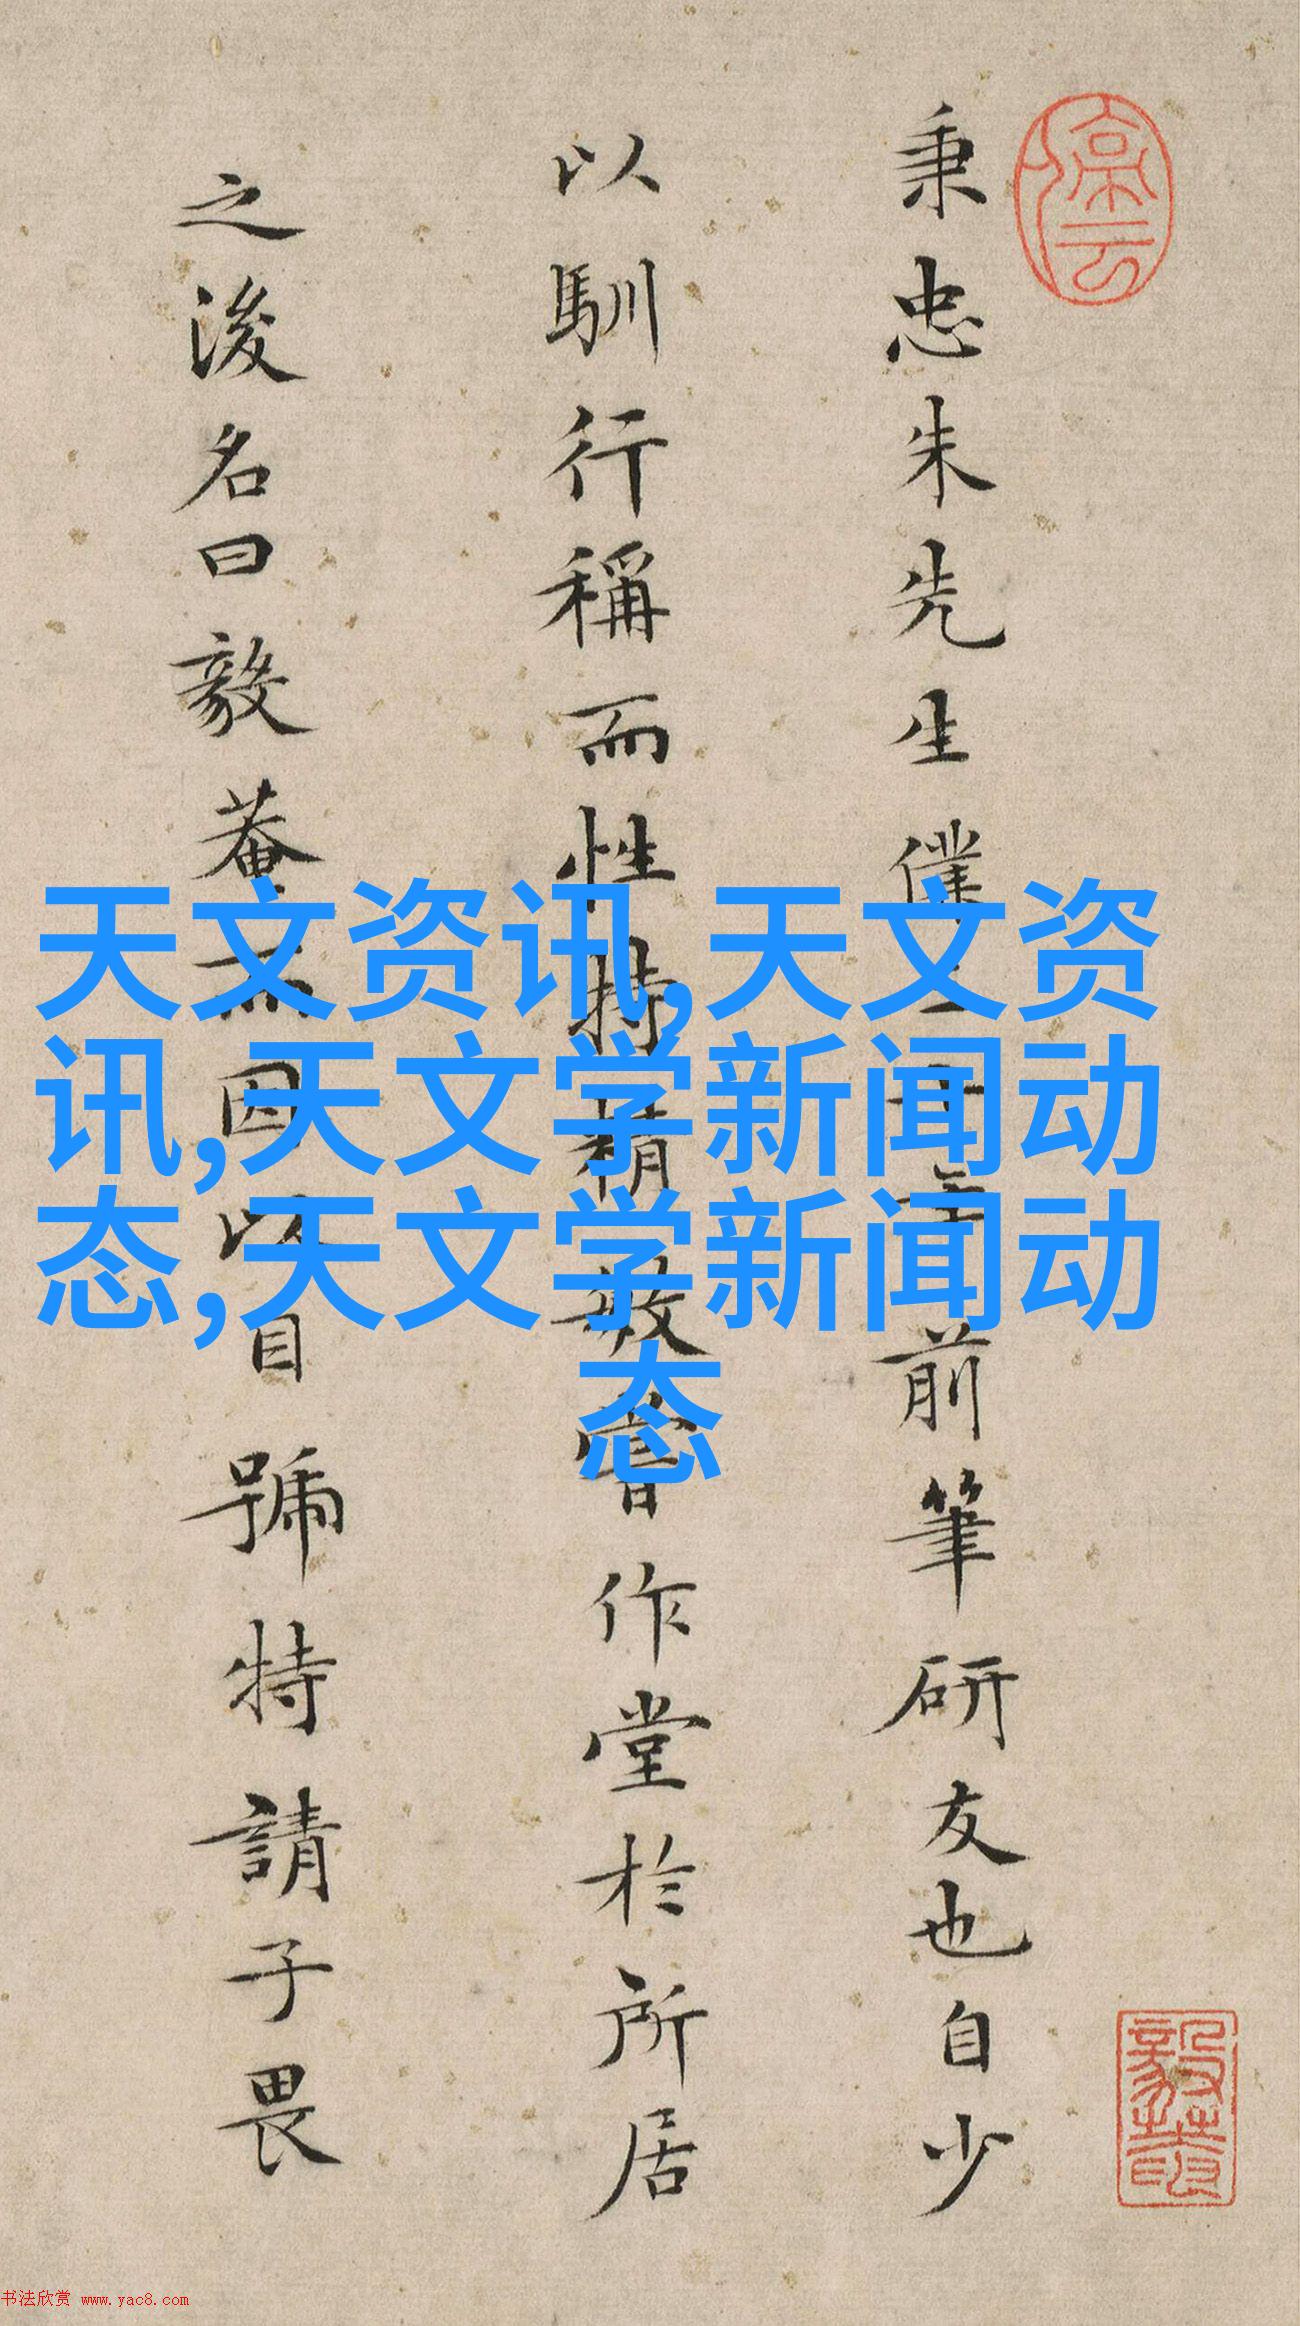 秉忠朱先生僕
前筆研友也自少
以馴行稱而性特精敏嘗作堂於所居
之後名曰毅菴而因以自號特請子畏
天文资讯,天文资
讯,天文学新闻动
态,天文学新闻动
态
书法欣赏 www.yac8.com